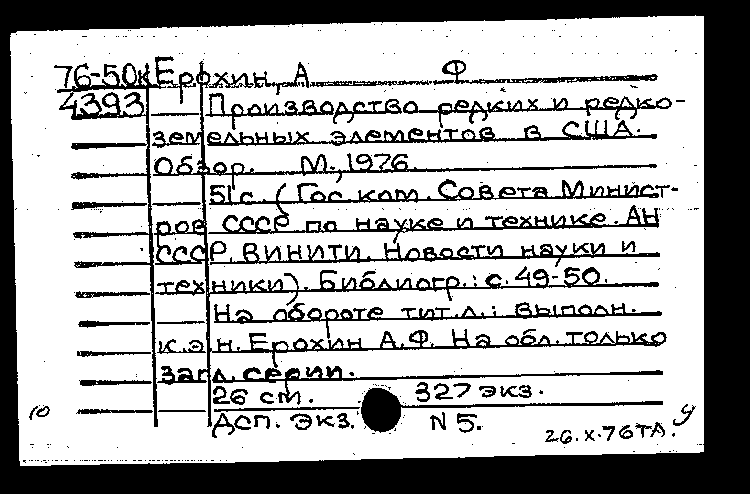 76-50к Ерохин, А Ф
4393 Производство редких и редко-
земельных элементов в США.
Обзор. М., 1976.
51с. (Гос. ком. Совета Минист-
ров СССР по науке и технике. АН
СССР. ВИНИТИ. Новости науки и
техники). Библиогр.: с. 49-50.
На обороте тит. л.: выполн.
к.э.н. Ерохин А.Ф. На обл. только
загл. серии.
26 см. 327 экз.
Дсп. Экз. N 5.
26.X.76 ТА.